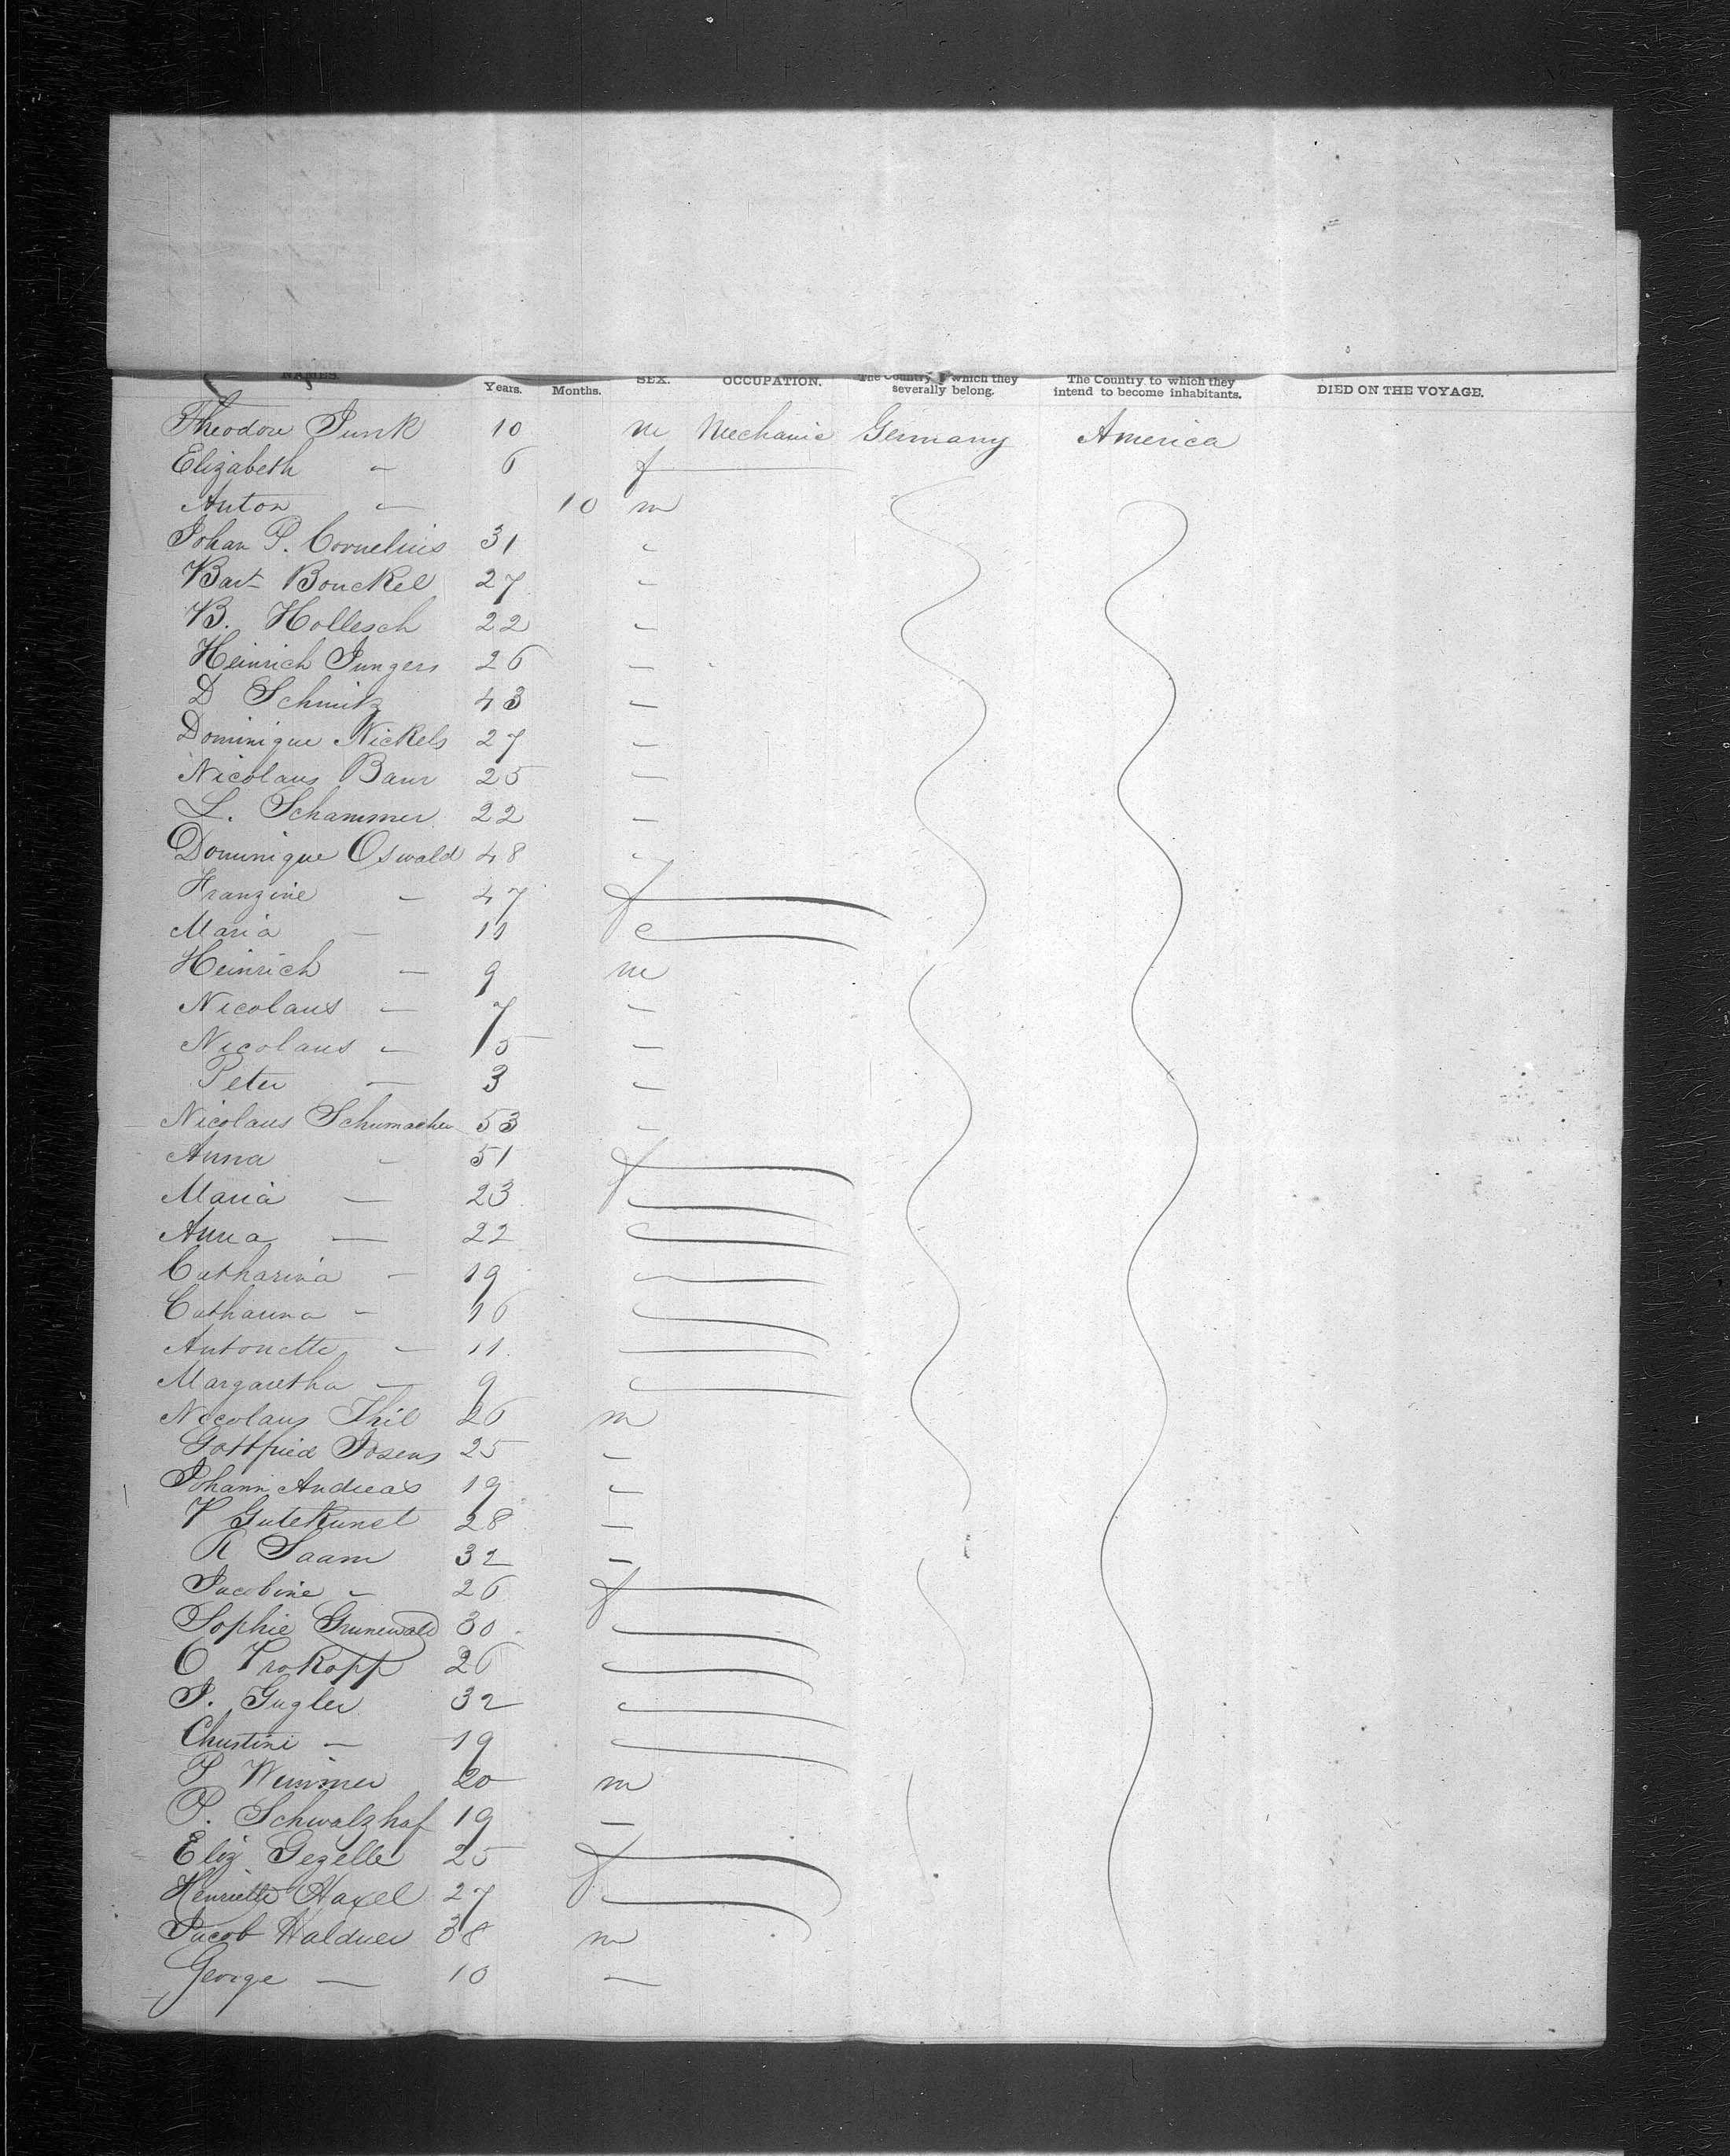 NAMES. Years. Months. SEX. OCCUPATION. The Country to which they severally belong. The Country to which they intend to become inhabitants. DIED ON THE VOYAGE.
Theodore Junk 10 m Mechanic Germany America
Elizabeth " 6 f
Anton — 10 m
Johan P. Cornelius 31 "
Bart Bouckel 27 "
B. Hollesch 22 "
Heinrich Jungers 26 —
D Schmitz 43 —
Dominique Nickels 27 —
Nicolaus Baur 25 —
L. Schammer 22 —
Dominique Oswald 48 "
Franzine — 47 f
Maria — 11 "
Heinrich — 9 m
Nicolaus — 7 —
Nicolaus — 5 —
Peter — 3 —
Nicolaus Schumacher 53 —
Anna — 51 f
Maria — 23
Anna — 22
Catharina — 19
Catharina — 16
Antonette — 11
Margaretha — 9
Nicolaus Thil 26 m
Gottfried Josens 25 —
Johann Andreas 19 —
P Gutekunst 28 —
R Saam 32 —
Jacobine — 26 f
Sophie Grunewald 30
C Prokopp 26
J. Gugler 32
Christine — 19
J Wimmer 20 m
P. Schwalzhaf 19 —
Eliz Gezelle 25 f
Henriette Haxel 27
Jacob Haldner 38 m
George — 10 —